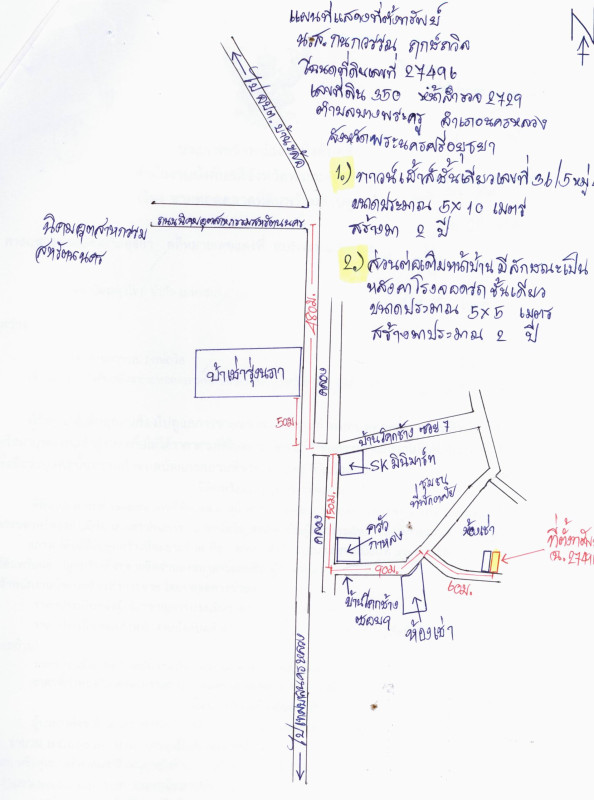 แผนที่แสดงที่ตั้งทรัพย์
N
น.ส.กนกวรรณ ฤกษ์ถวิล
โฉนดที่ดินเลขที่ 27496
เลขที่ดิน 350 หน้าสำรวจ 2729
ตำบลบางพระครู อำเภอนครหลวง
จังหวัดพระนครศรีอยุธยา
1.) ทาวน์เฮ้าส์ชั้นเดียวเลขที่ 36/5 หมู่
ขนาดประมาณ 5x10 เมตร
สร้างมา 2 ปี
2.) ส่วนต่อเติมหน้าบ้าน มีลักษณะเป็น
หลังคาโรงจอดรถ ชั้นเดียว
ขนาดประมาณ 5x5 เมตร
สร้างมาประมาณ 2 ปี
ไป อบต. บ้าน
ถนนนิคมอุตสาหกรรมสหรัตนนคร
นิคมอุตสาหกรรม
สหรัตนนคร
480ม.
บ้านเช่ารุ่งนภา
คลอง
50ม.
บ้านโคกช้าง ซอย 7
SK มินิมาร์ท
ชุมชน
ที่พักอาศัย
150ม.
คลอง
ครัว
กาหลง
ห้องเช่า
ที่ตั้งทรัพย์
ฉ.2749
90ม.
60ม.
บ้านโคกช้าง
ซอย 9
ห้องเช่า
ไปเทศบาลนครหลวง